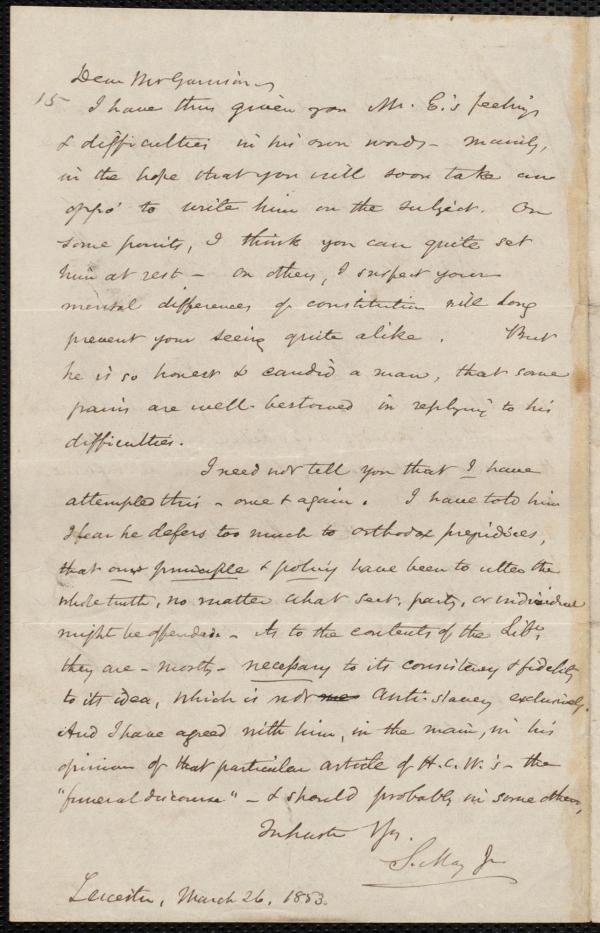 Dear Mr Garrison,
15 I have thus given you Mr. E.'s feelings
& difficulties in his own words - mainly,
in the hope that you will soon take an
oppo' to write him on the subject. On
some points, I think you can quite set
him at rest - on others, I suspect your
mental differences of constitution will long
prevent your seeing quite alike. But
he is so honest & candid a man, that some
pains are well bestowed in replying to his
difficulties.
I need not tell you that I have
attempted this - once & again. I have told him
I fear he defers too much to orthodox prejudices,
that our principle & policy have been to utter the
whole truth, no matter what sect, party, or individual
might be offended. - As to the contents of the Libr.,
they are - mostly - necessary to its consistency & fidelity
to its idea, which is not anti-slavery exclusively.
And I have agreed with him, in the main, in his
opinion of that particular article of H.C.W.'s - the
"funeral discourse" - & should probably in some others,
In haste Yrs.
S. May Jr
Leicester, March 26, 1853.